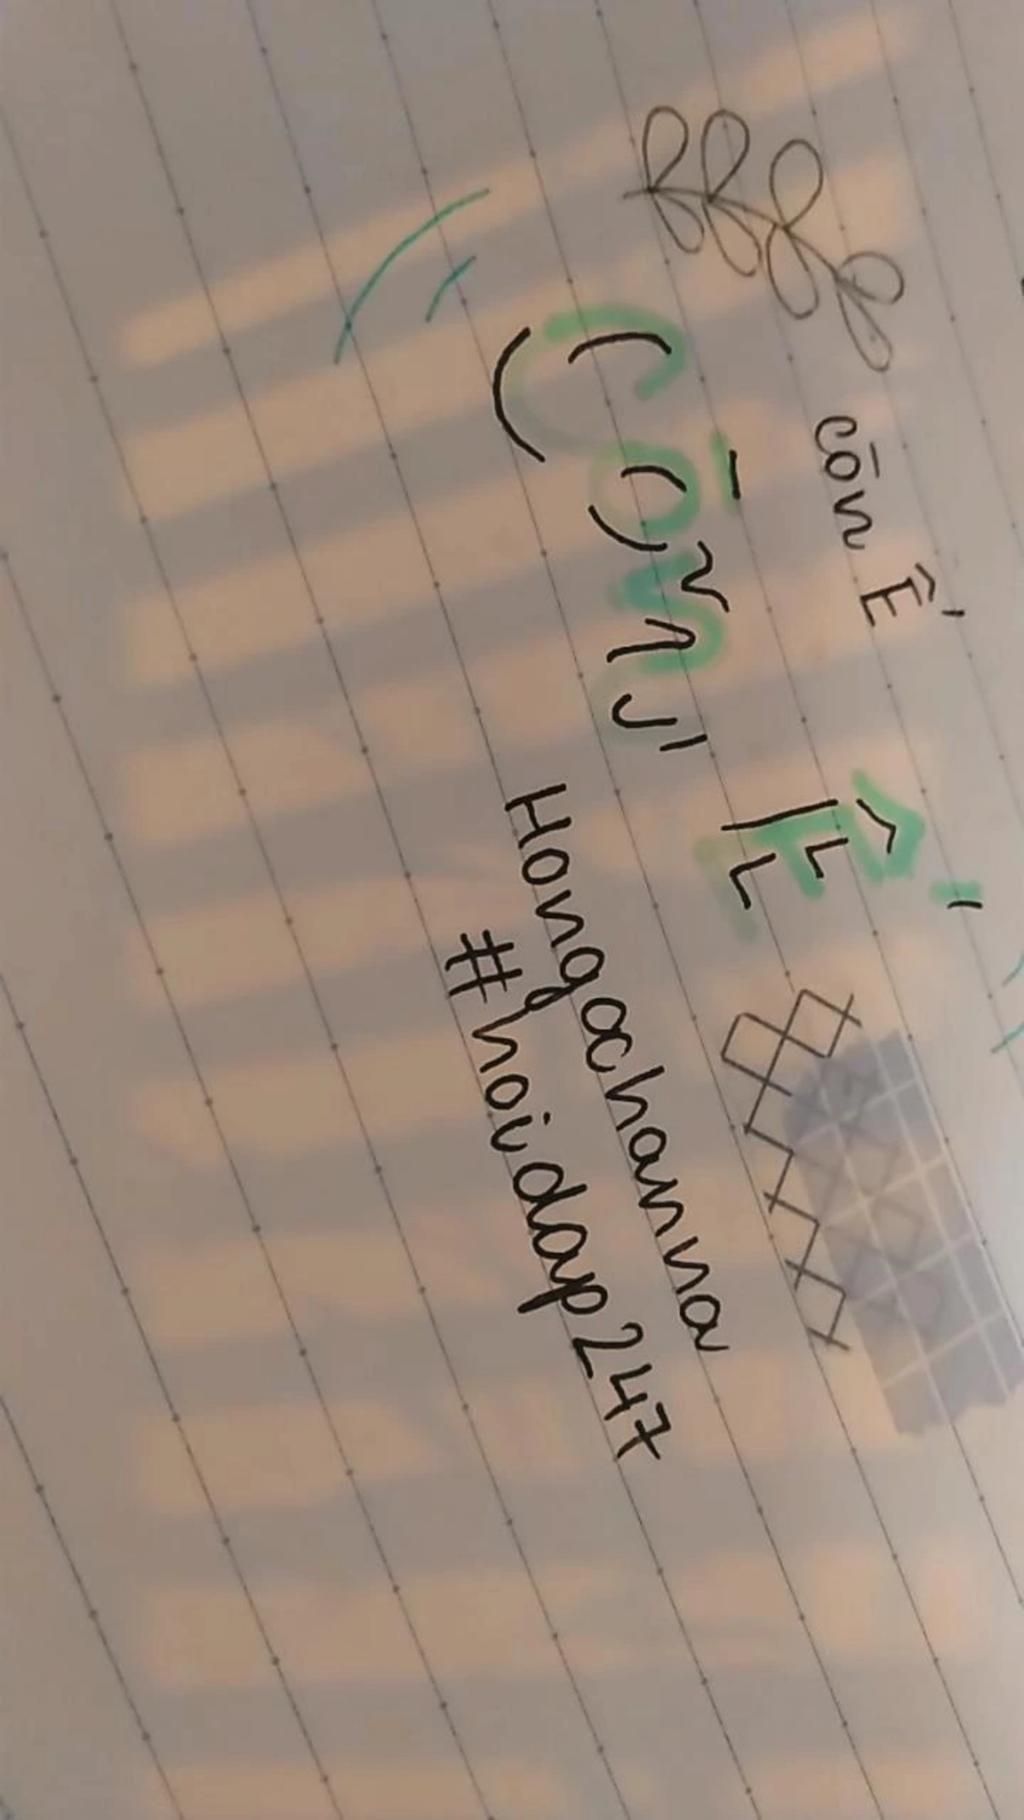 cōn Ế
Cōn Ế
Hongochanna
#hoidap247